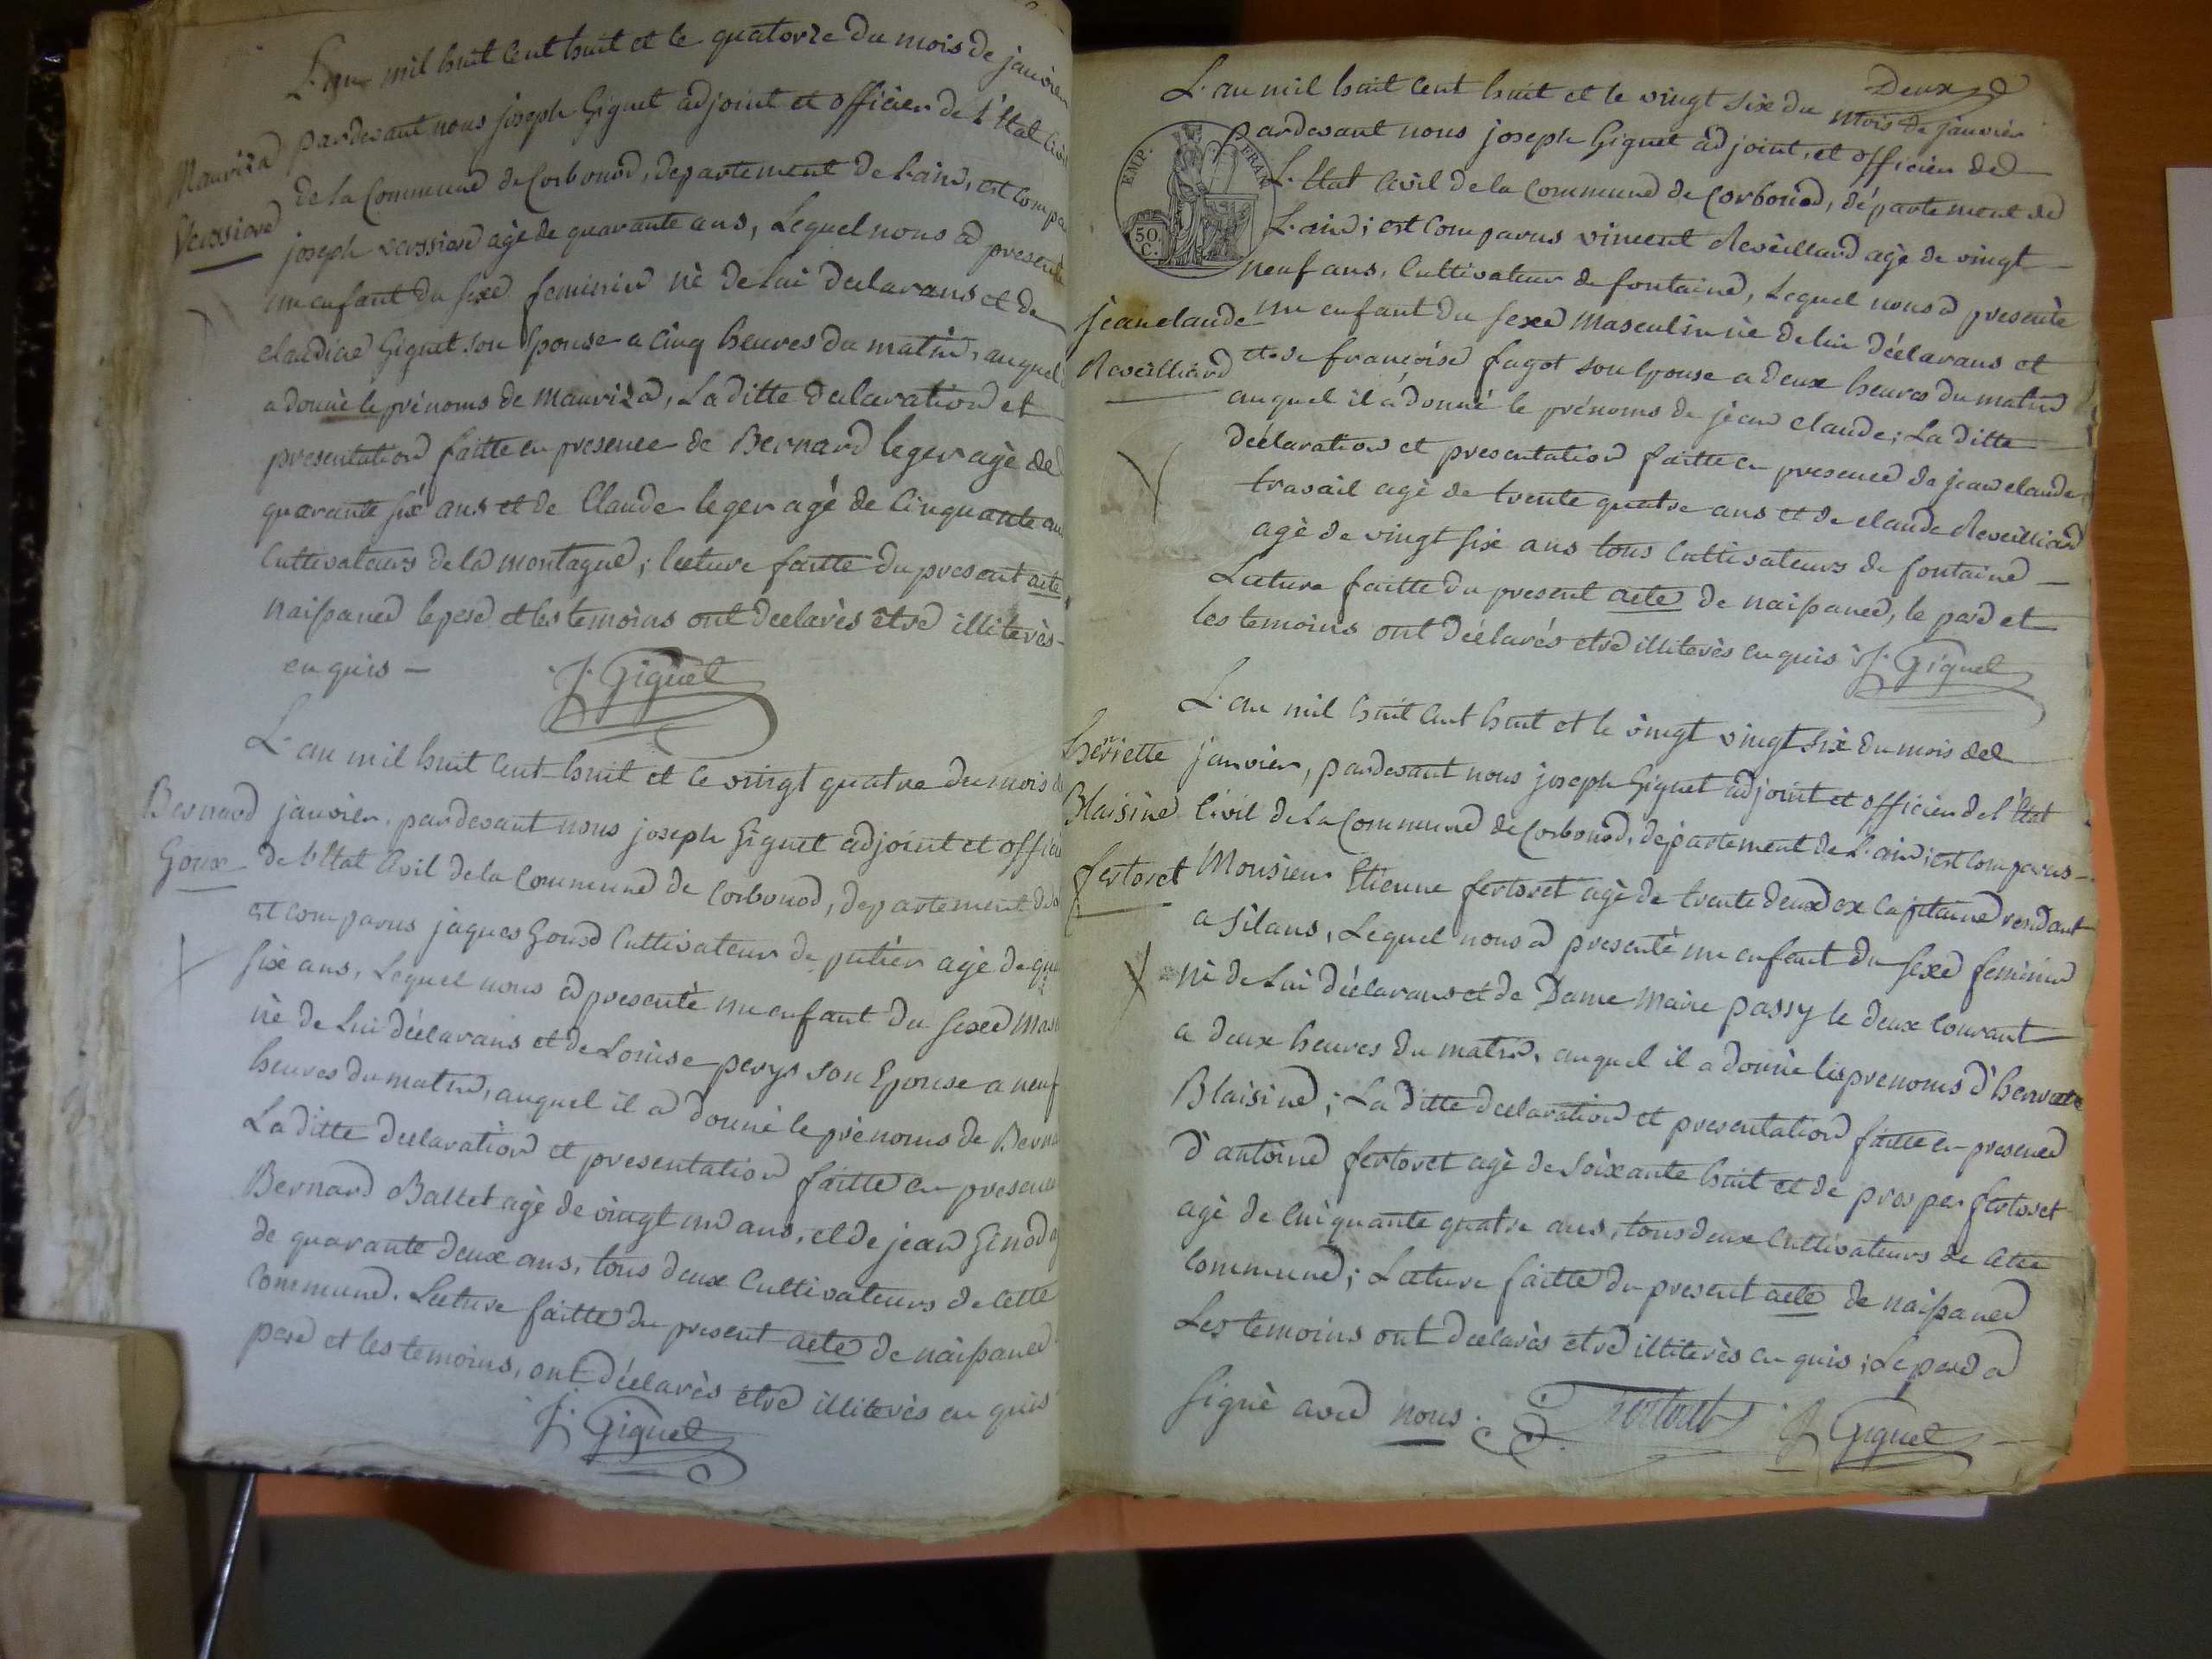 L'an mil huit cent huit et le quatorze du mois de janvier
pardevant nous joseph Giguet adjoint et officier de l'Etat Civil
Mauriza
Verssiere
de la Commune de Corbonod, departement de L'ain, est compa
joseph verssiere agè de quarante ans, Lequel nous a presentè
un enfant du sexe feminin nè de lui declarans et de
claudine Giguet son Epouse a cinq heures du matin, auquel
a donnè le prénoms de Mauriza, La ditte declaration et
presentation faitte en presence de Bernard leger agè de
quarante six ans et de Claude leger agè de Cinquante ans
Cultivateurs de la montagne; lecture faitte du present acte
naissance le pere et les temoins ont declarès être illiterès
en quis —
J. Giguet
L'an mil huit cent huit et le vingt quatre du mois de
Bernard
Goux
janvier, pardevant nous joseph Giguet adjoint et offici
de l'Etat Civil de la Commune de Corbonod, departement de
est comparus jaques Goux Cultivateur de putier agè de qua
six ans, Lequel nous a presentè un enfant du sexe mas
nè de Lui déclarans et de Louise perys son Epouse a neuf
heures du matin, auquel il a donnè le prénoms de Berna
La ditte declaration et presentation faitte en presence
Bernard Ballet agè de vingt un ans, et de jean Genod a
de quarante deux ans, tous deux Cultivateurs de cette
Commune. Lecture faitte du present acte de naissance
pere et les temoins, ont déclarès être illiterès en quis
J. Giguet
Deux
L'an mil huit cent huit et le vingt six du mois de janvier
EMP. FRAN.
50
C.
pardevant nous joseph Giguet adjoint, et officier de
L'Etat Civil de la Commune de Corbonod, département de
L'ain; est Comparus vincent Reveilliard agè de vingt
neuf ans, Cultivateur de fontaine, Lequel nous a presentè
jean claude
Reveilliard
un enfant du sexe Masculin nè de lui déclarans et
et de françoise fagot son Epouse a deux heures du matin
auquel il a donné le prénoms de jean claude; La ditte
déclaration et presentation faitte en presence de jean claude
travail agè de trente quatre ans et de claude Reveilliard
agè de vingt six ans tous Cultivateurs de fontaine
Lecture faitte du present acte de naissance, le pere et
les temoins ont déclarés etre illiterès en quis J. Giguet
L'an mil huit cent huit et le vingt vingt six du mois de
henriette
Blaisine
fertoret
janvier, pardevant nous joseph Giguet adjoint et officier de l'Etat
Civil de la Commune de Corbonod, departement de L'ain; est comparus
Monsieur Etienne fertoret agè de trente deux ex Capitaine resident
a silans, Lequel nous a presentè un enfant du sexe feminin
nè de Lui déclarans et de Dame Marie passy le deux Courant
a deux heures du matin, auquel il a donnè les prenoms d'henriette
Blaisine; La ditte declaration et presentation faitte en presence
d'antoine fertoret agè de Soixante huit et de prosper fertoret
agè de Cinquante quatre ans, tous deux Cultivateurs de cette
Commune; Lecture faitte du present acte de naissance
Les temoins ont declarès etre illiterès en quis; Le pere a
signè avec nous.
Fertoret J. Giguet